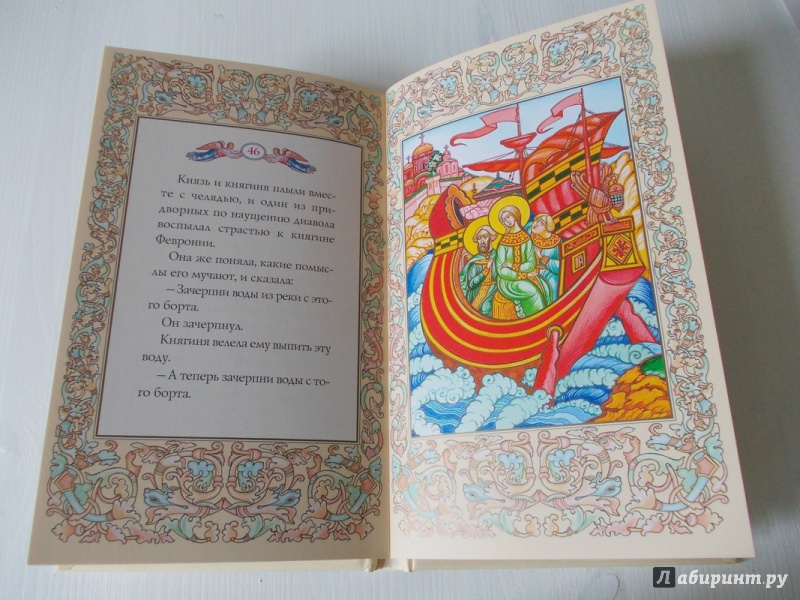 46
Князь и княгиня плыли вмес-
те с челядью, и один из при-
дворных по наущению диавола
воспылал страстью к княгине
Февронии.
Она же поняла, какие помыс-
лы его мучают, и сказала:
— Зачерпни воды из реки с это-
го борта.
Он зачерпнул.
Княгиня велела ему выпить эту
воду.
— А теперь зачерпни воды с то-
го борта.
Лабиринт.ру